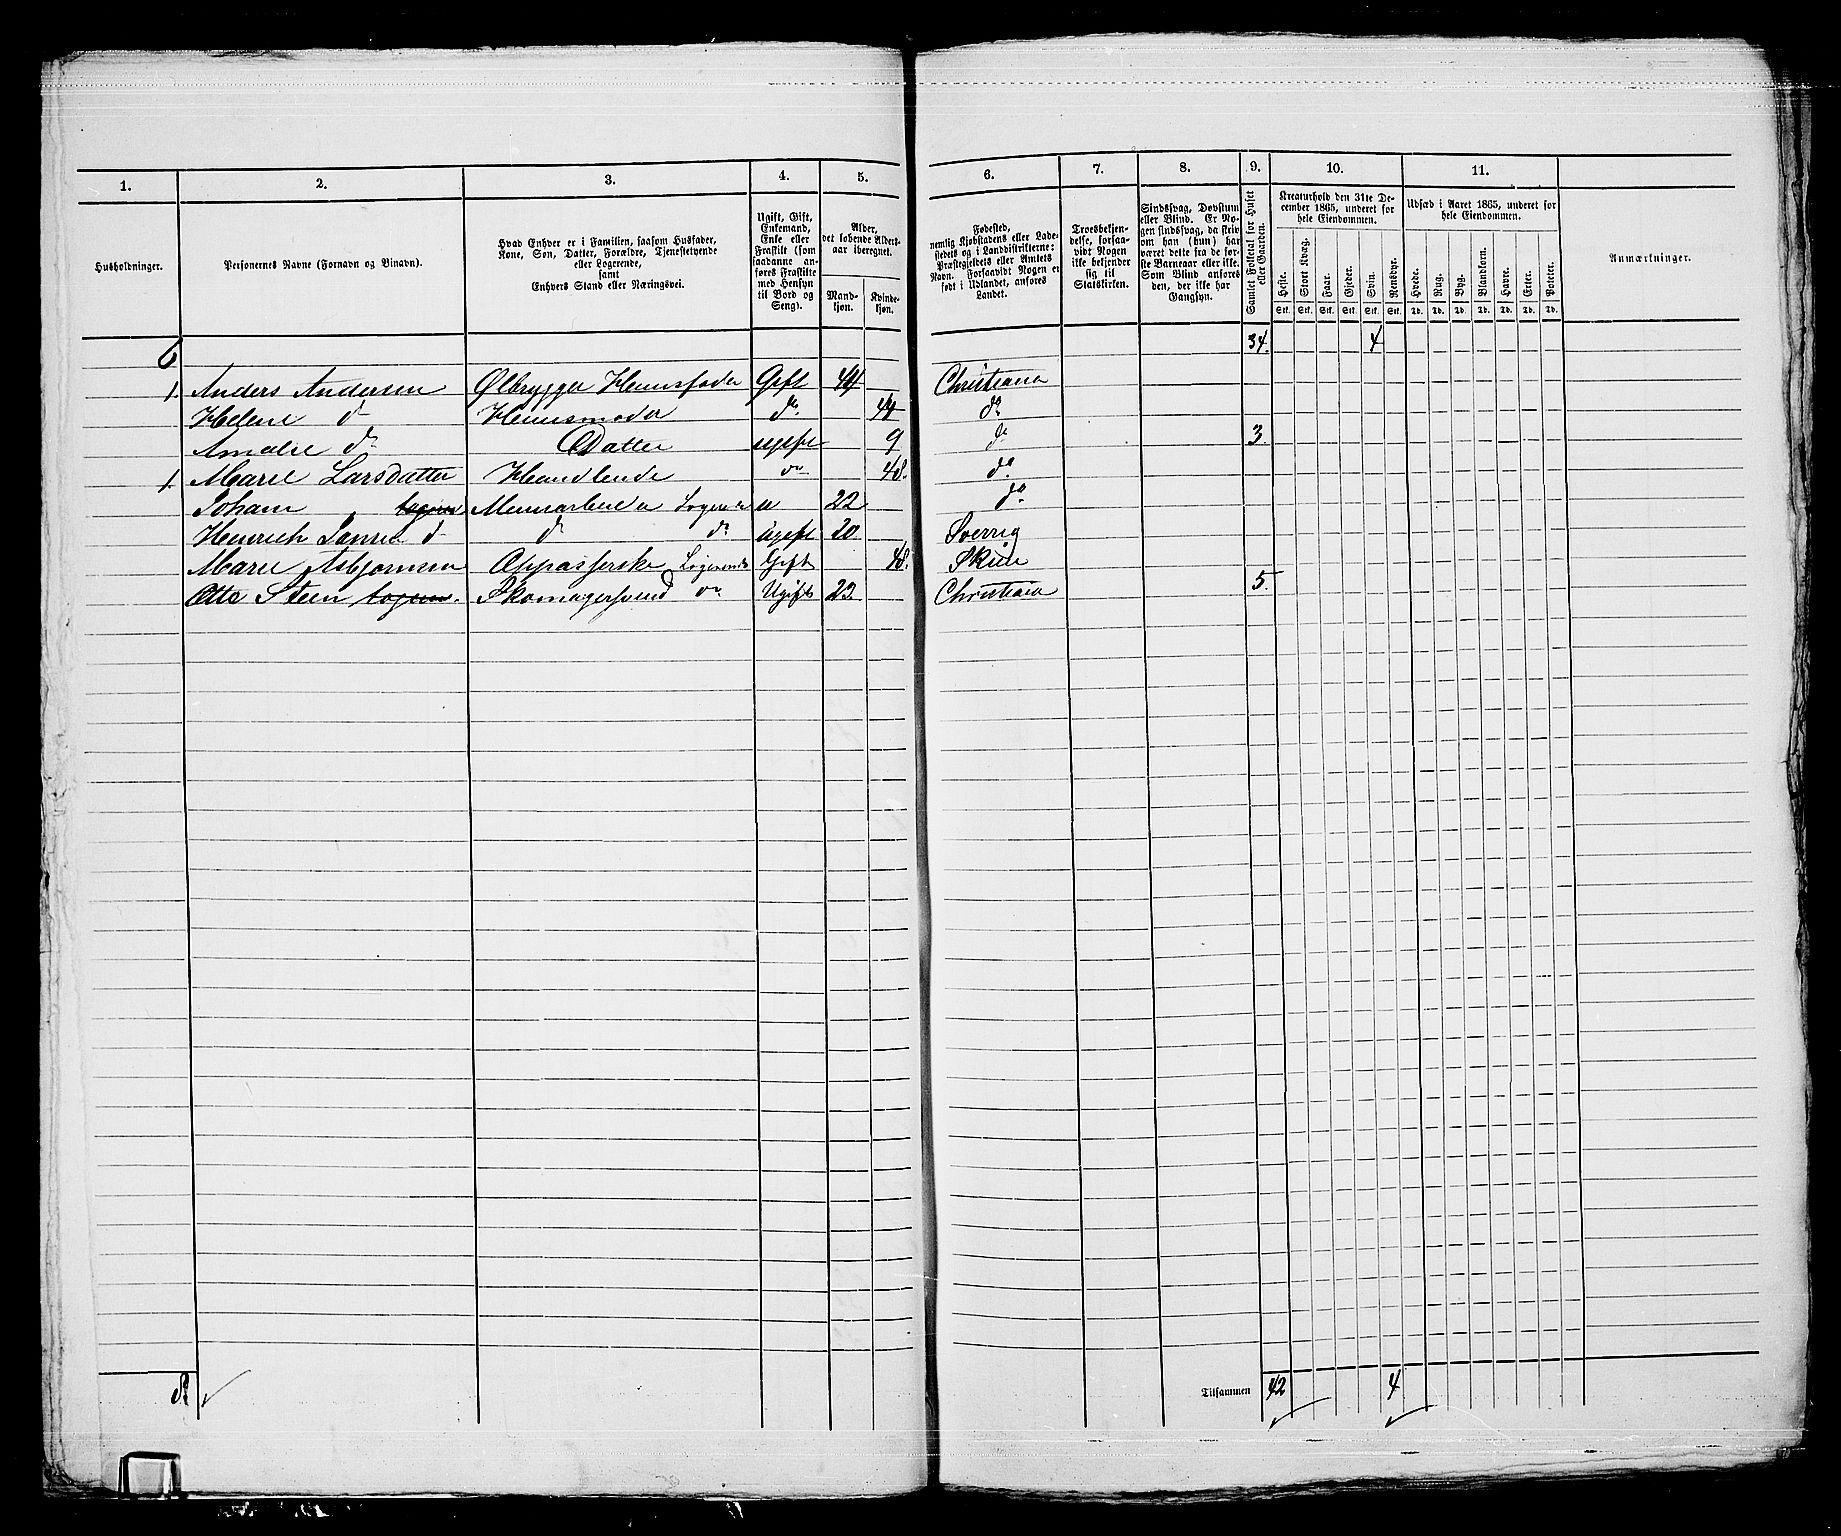 1. 2. 3. 4. 5. 6. 7. 8. 9. 10. 11.
Husholdninger.
Personernes Navne (Fornavn og Binavn).
Hvad Enhver er i Familien, saasom Husfader,
Kone, Søn, Datter, Forældre, Tjenestetyende
eller Logerende,
samt
Enhvers Stand eller Næringsvei.
Ugift, Gift,
Enkemand,
Enke eller
Fraskilt (som
saadanne an-
føres Fraskilte
med Hensyn
til Bord og
Seng).
Alder,
det løbende Alders-
aar iberegnet.
Mand-
kjøn.
Kvinde-
kjøn.
Fødested,
nemlig Kjøbstadens eller Lade-
stedets og i Landdistrikterne:
Præstegjeldets eller Amtets
Navn. Forsaavidt Nogen er
født i Udlandet, anføres
Landet.
Troesbekjen-
delse, forsaa-
vidt Nogen
ikke bekjender
sig til
Statskirken.
Sindssvag, Døvstum
eller Blind. Er No-
gen sindssvag, da skriv
om han (hun) har
været dette fra de før-
ste Barneaar eller ikke.
Som Blind anføres
den, der ikke har
Gangsyn.
Samlet Folketal for Huset
eller Gaarden.
Kreaturhold den 31te De-
cember 1865, underet for
hele Eiendommen.
Heste. Stort Kvæg. Faar. Gjeder. Svin. Rensdyr.
Stk. Stk. Stk. Stk. Stk. Stk.
Udsæd i Aaret 1865, underet for
hele Eiendommen.
Hvede. Rug. Byg. Blandkorn. Havre. Erter. Poteter.
Td. Td. Td. Td. Td. Td. Td.
Anmærkninger.
6 34. 4
1. Anders Andersen Ølbrygger Huusfader Gift 44 Christiana
Helene do Huusmoder do 44 do
Amalie do Datter ugift 9 do 3
1. Marie Larsdatter Handlende do 48. do
Johan Muurarbeider Logerende u 22 do
Heinrich Jansen do do do ugift 20 Sverrig
Marie Asbjørnsen Oppasserske Logerende Gift 48. Skien
Otto Steen Skomagersvend do Ugift 22 Christiania 5.
8
Tilsammen 42 4